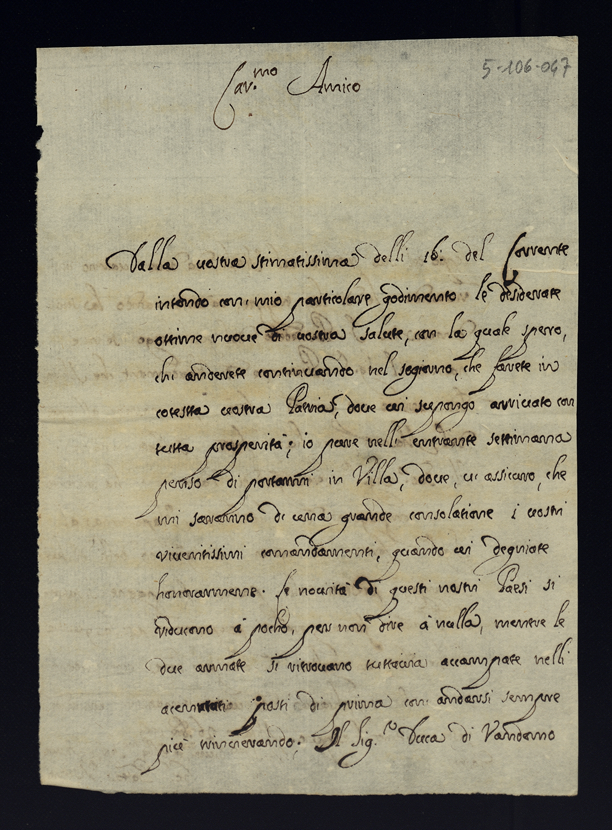 5-106-047
Car.mo Amico
Dalla vostra stimatissima delli 16: del Corrente
intendo con mio particolare godimento le desiderate
ottime nuove di vostra salute, con la quale spero,
chi anderete continuando nel sogiorno, che farete in
cotesta vostra Patria, dove vi supongo arrivato con
tutta prosperità; io pure nelli entrante settimana
penso di portarmi in Villa, dove, v'assicuro, che
mi saranno di una grande consolatione i vostri
riveritissimi comandamenti, quando vi degniate
honorarmene. Le novità di questi nostri Paesi si
riducono à pocho, per non dire à nulla, mentre le
due armate si ritrovano tuttavia accampate nelli
posti di prima con andarsi sempre
più trincierando; Il Sig.r Duca di Vandomo